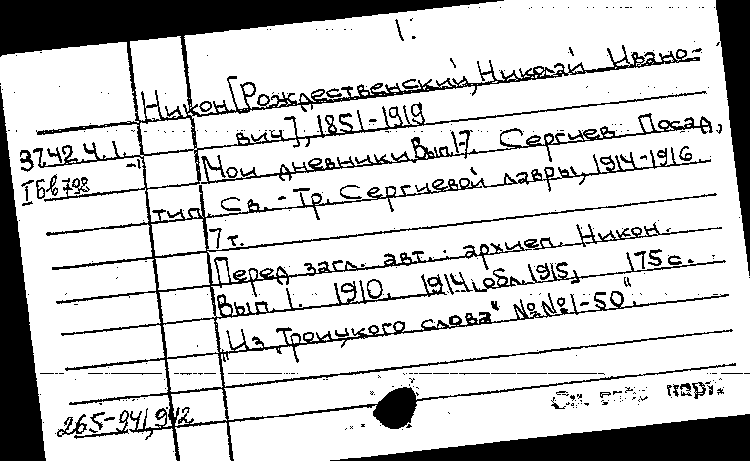 1:
Никон [Рождественский, Николай Ивано-
вич], 1851-1919
37.42.4.1.
Мои дневники Вып. 1-7. Сергиев Посад,
тип. Св. - Тр. Сергиевой лавры, 1914-1916.
7 т.
Перед загл. авт.: архиеп. Никон.
Вып. 1. 1910. 1914, обл. 1915, 175 с.
„Из „Троицкого слова" №№ 1-50".
265-941,942
См. карт.